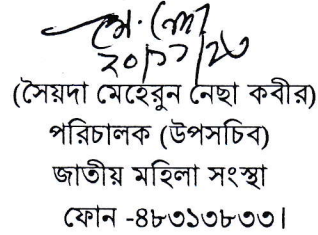 ২০/১১/২৩
(সৈয়দা মেহেরুন নেছা কবীর)
পরিচালক (উপসচিব)
জাতীয় মহিলা সংস্থা
ফোন -৪৮৩১৩৮৩৩।